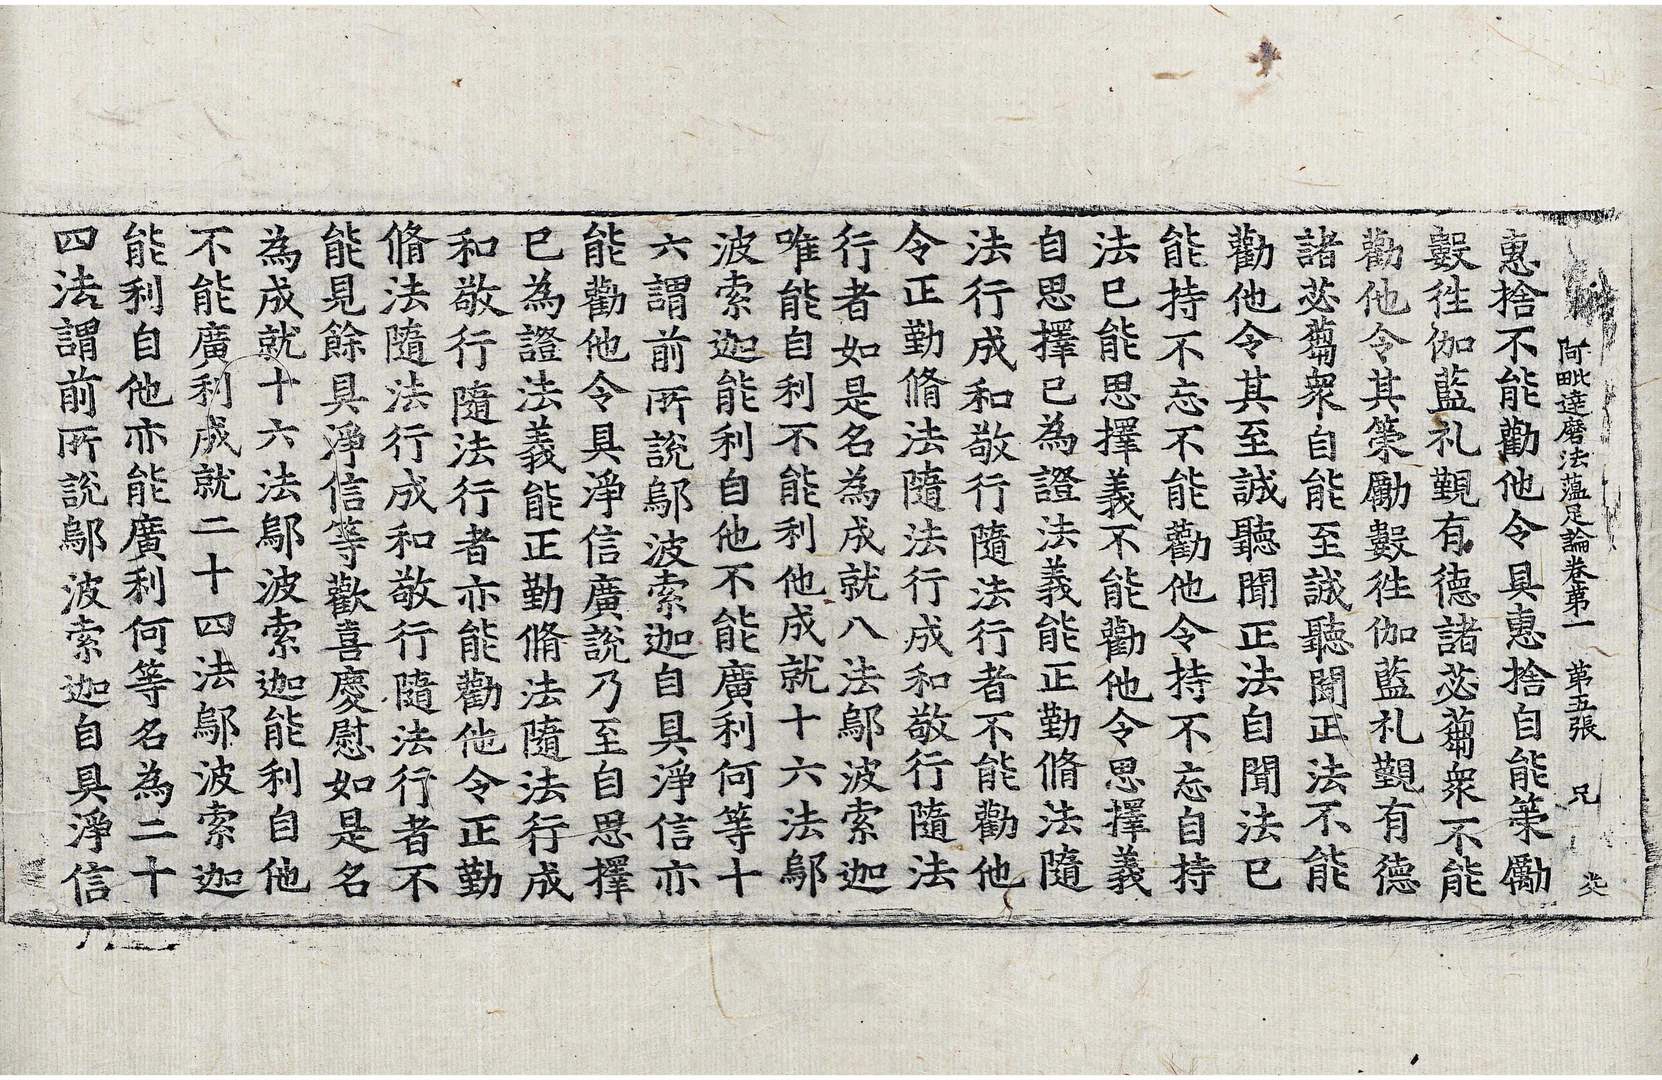 阿毗達磨法蘊足論卷第一 第五張 兄
惠捨不能勸他令具惠捨自能策勵
數徃伽藍礼覲有德諸苾蒭衆不能
勸他令其策勵數徃伽藍礼覲有德
諸苾蒭衆自能至誠聽聞正法不能
勸他令其至誠聽聞正法自聞法已
能持不忘不能勸他令持不忘自持
法已能思擇義不能勸他令思擇義
自思擇已為證法義能正勤脩法隨
法行成和敬行隨法行者不能勸他
令正勤脩法隨法行成和敬行隨法
行者如是名為成就八法鄔波索迦
唯能自利不能利他成就十六法鄔
波索迦能利自他不能廣利何等十
六謂前所說鄔波索迦自具淨信亦
能勸他令具淨信廣說乃至自思擇
已為證法義能正勤脩法隨法行成
和敬行隨法行者亦能勸他令正勤
脩法隨法行成和敬行隨法行者不
能見餘具淨信等歡喜慶慰如是名
為成就十六法鄔波索迦能利自他
不能廣利成就二十四法鄔波索迦
能利自他亦能廣利何等名為二十
四法謂前所說鄔波索迦自具淨信